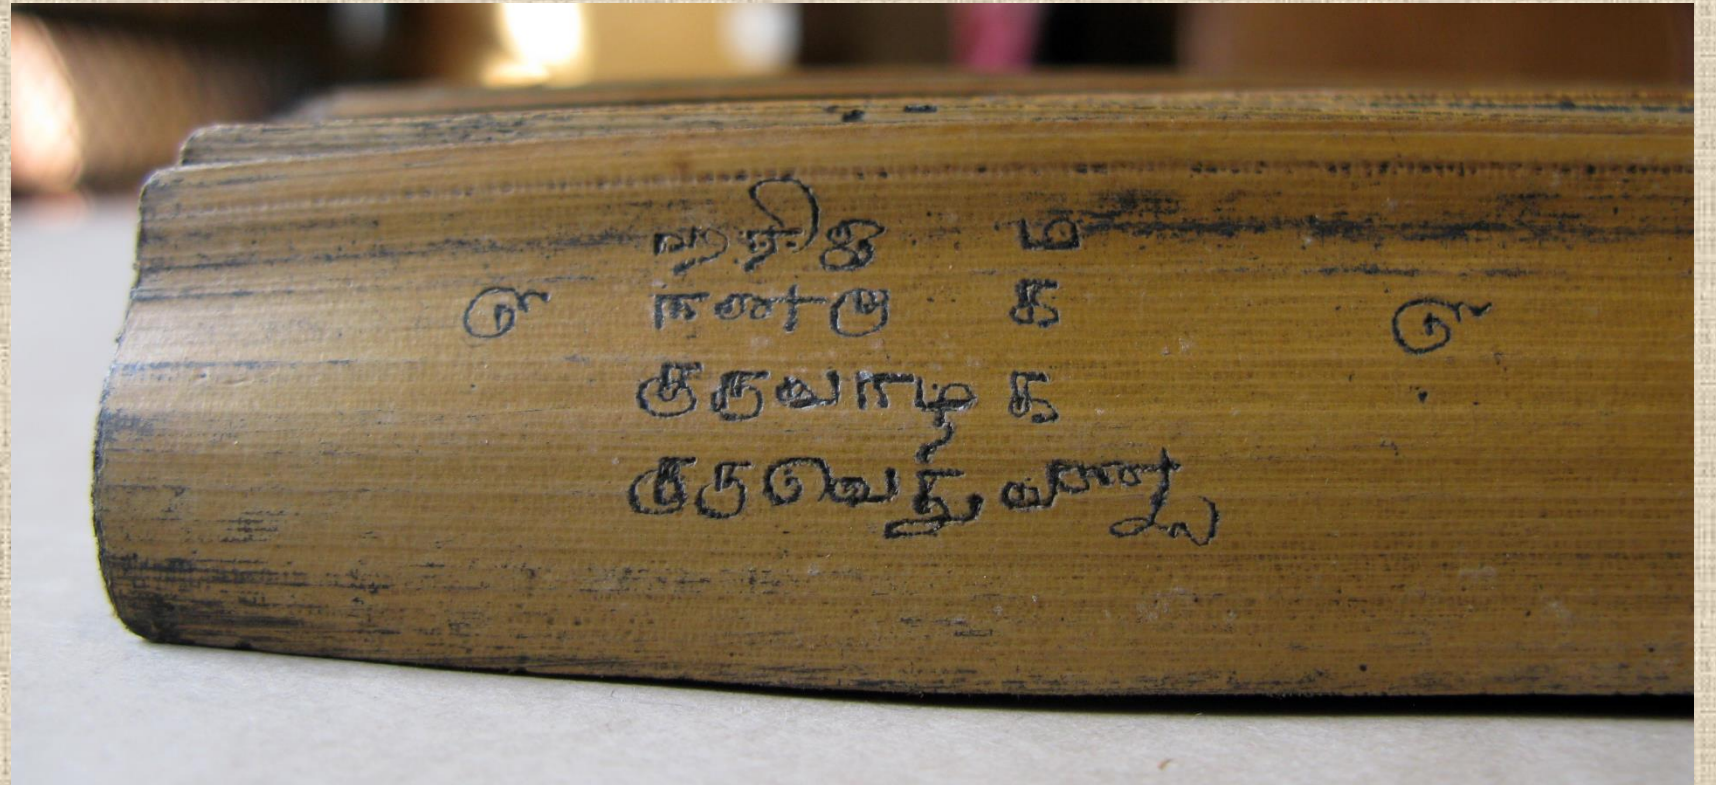 ஹரிஓ ம
உ நனறா க உ
குருவாழ க
குருவெ துணை